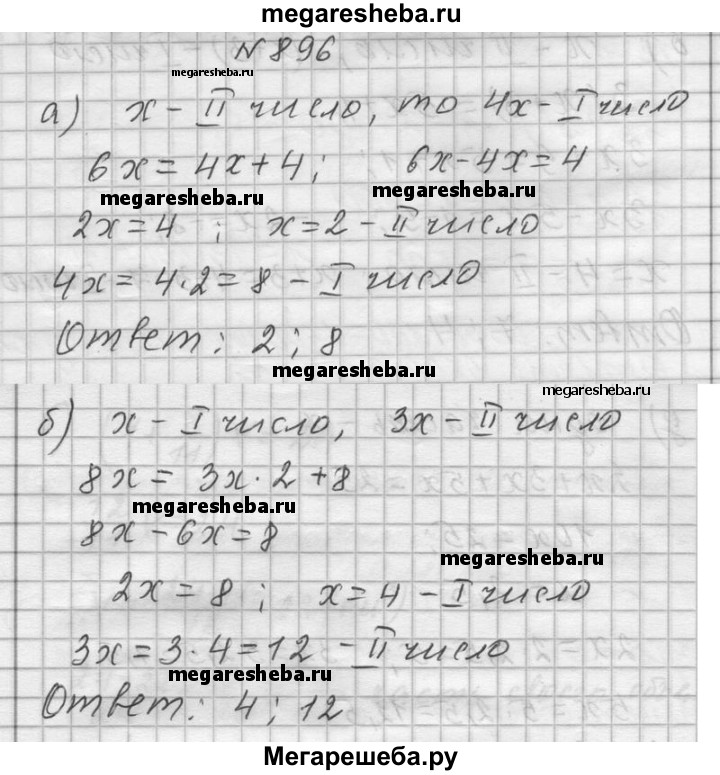 megaresheba.ru
№ 896
megaresheba.ru
а) x – II число, то 4x – I число
6x = 4x + 4; 6x – 4x = 4
megaresheba.ru megaresheba.ru
2x = 4 ; x = 2 – II число
4x = 4·2 = 8 – I число
Ответ: 2; 8
megaresheba.ru
megaresheba.ru
б) x – I число, 3x – II число
8x = 3x · 2 + 8
megaresheba.ru
8x – 6x = 8
megaresheba.ru
2x = 8 ; x = 4 – I число
3x = 3·4 = 12 – II число
megaresheba.ru
Ответ: 4; 12
megaresheba.ru
Мегарешеба.ру